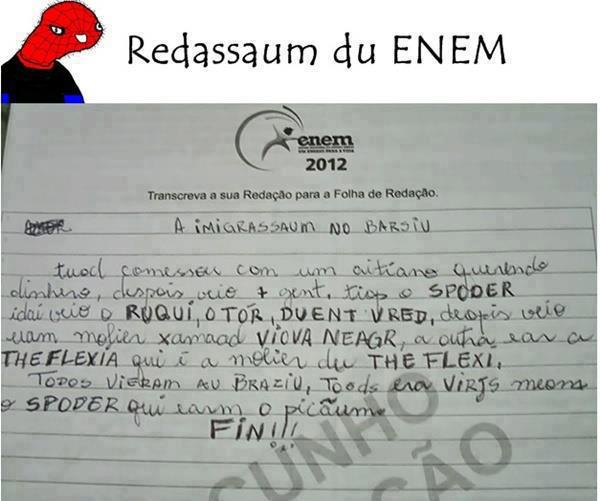 Redassaum du ENEM
enem
2012
Transcreva a sua Redação para a Folha de Redação.
A IMIGRASSAUM NO BARSIU
tuod comesseu com um aitiano querendo
dinhero, despois veio + gent, tiop o SPODER
idai veio o RUQUI, O TÓR, DUENT VRED, deopis veio
euam molier xamaad VIOVA NEAGR, a outra ear a
THEFLEXIA qui é a molier du THE FLEXI.
TODOS VIERAM AU BRAZIU, Toods era VIRJS meons
o SPODER qui earm o picãum
FIN!!!
CUNHO
ÇÃO